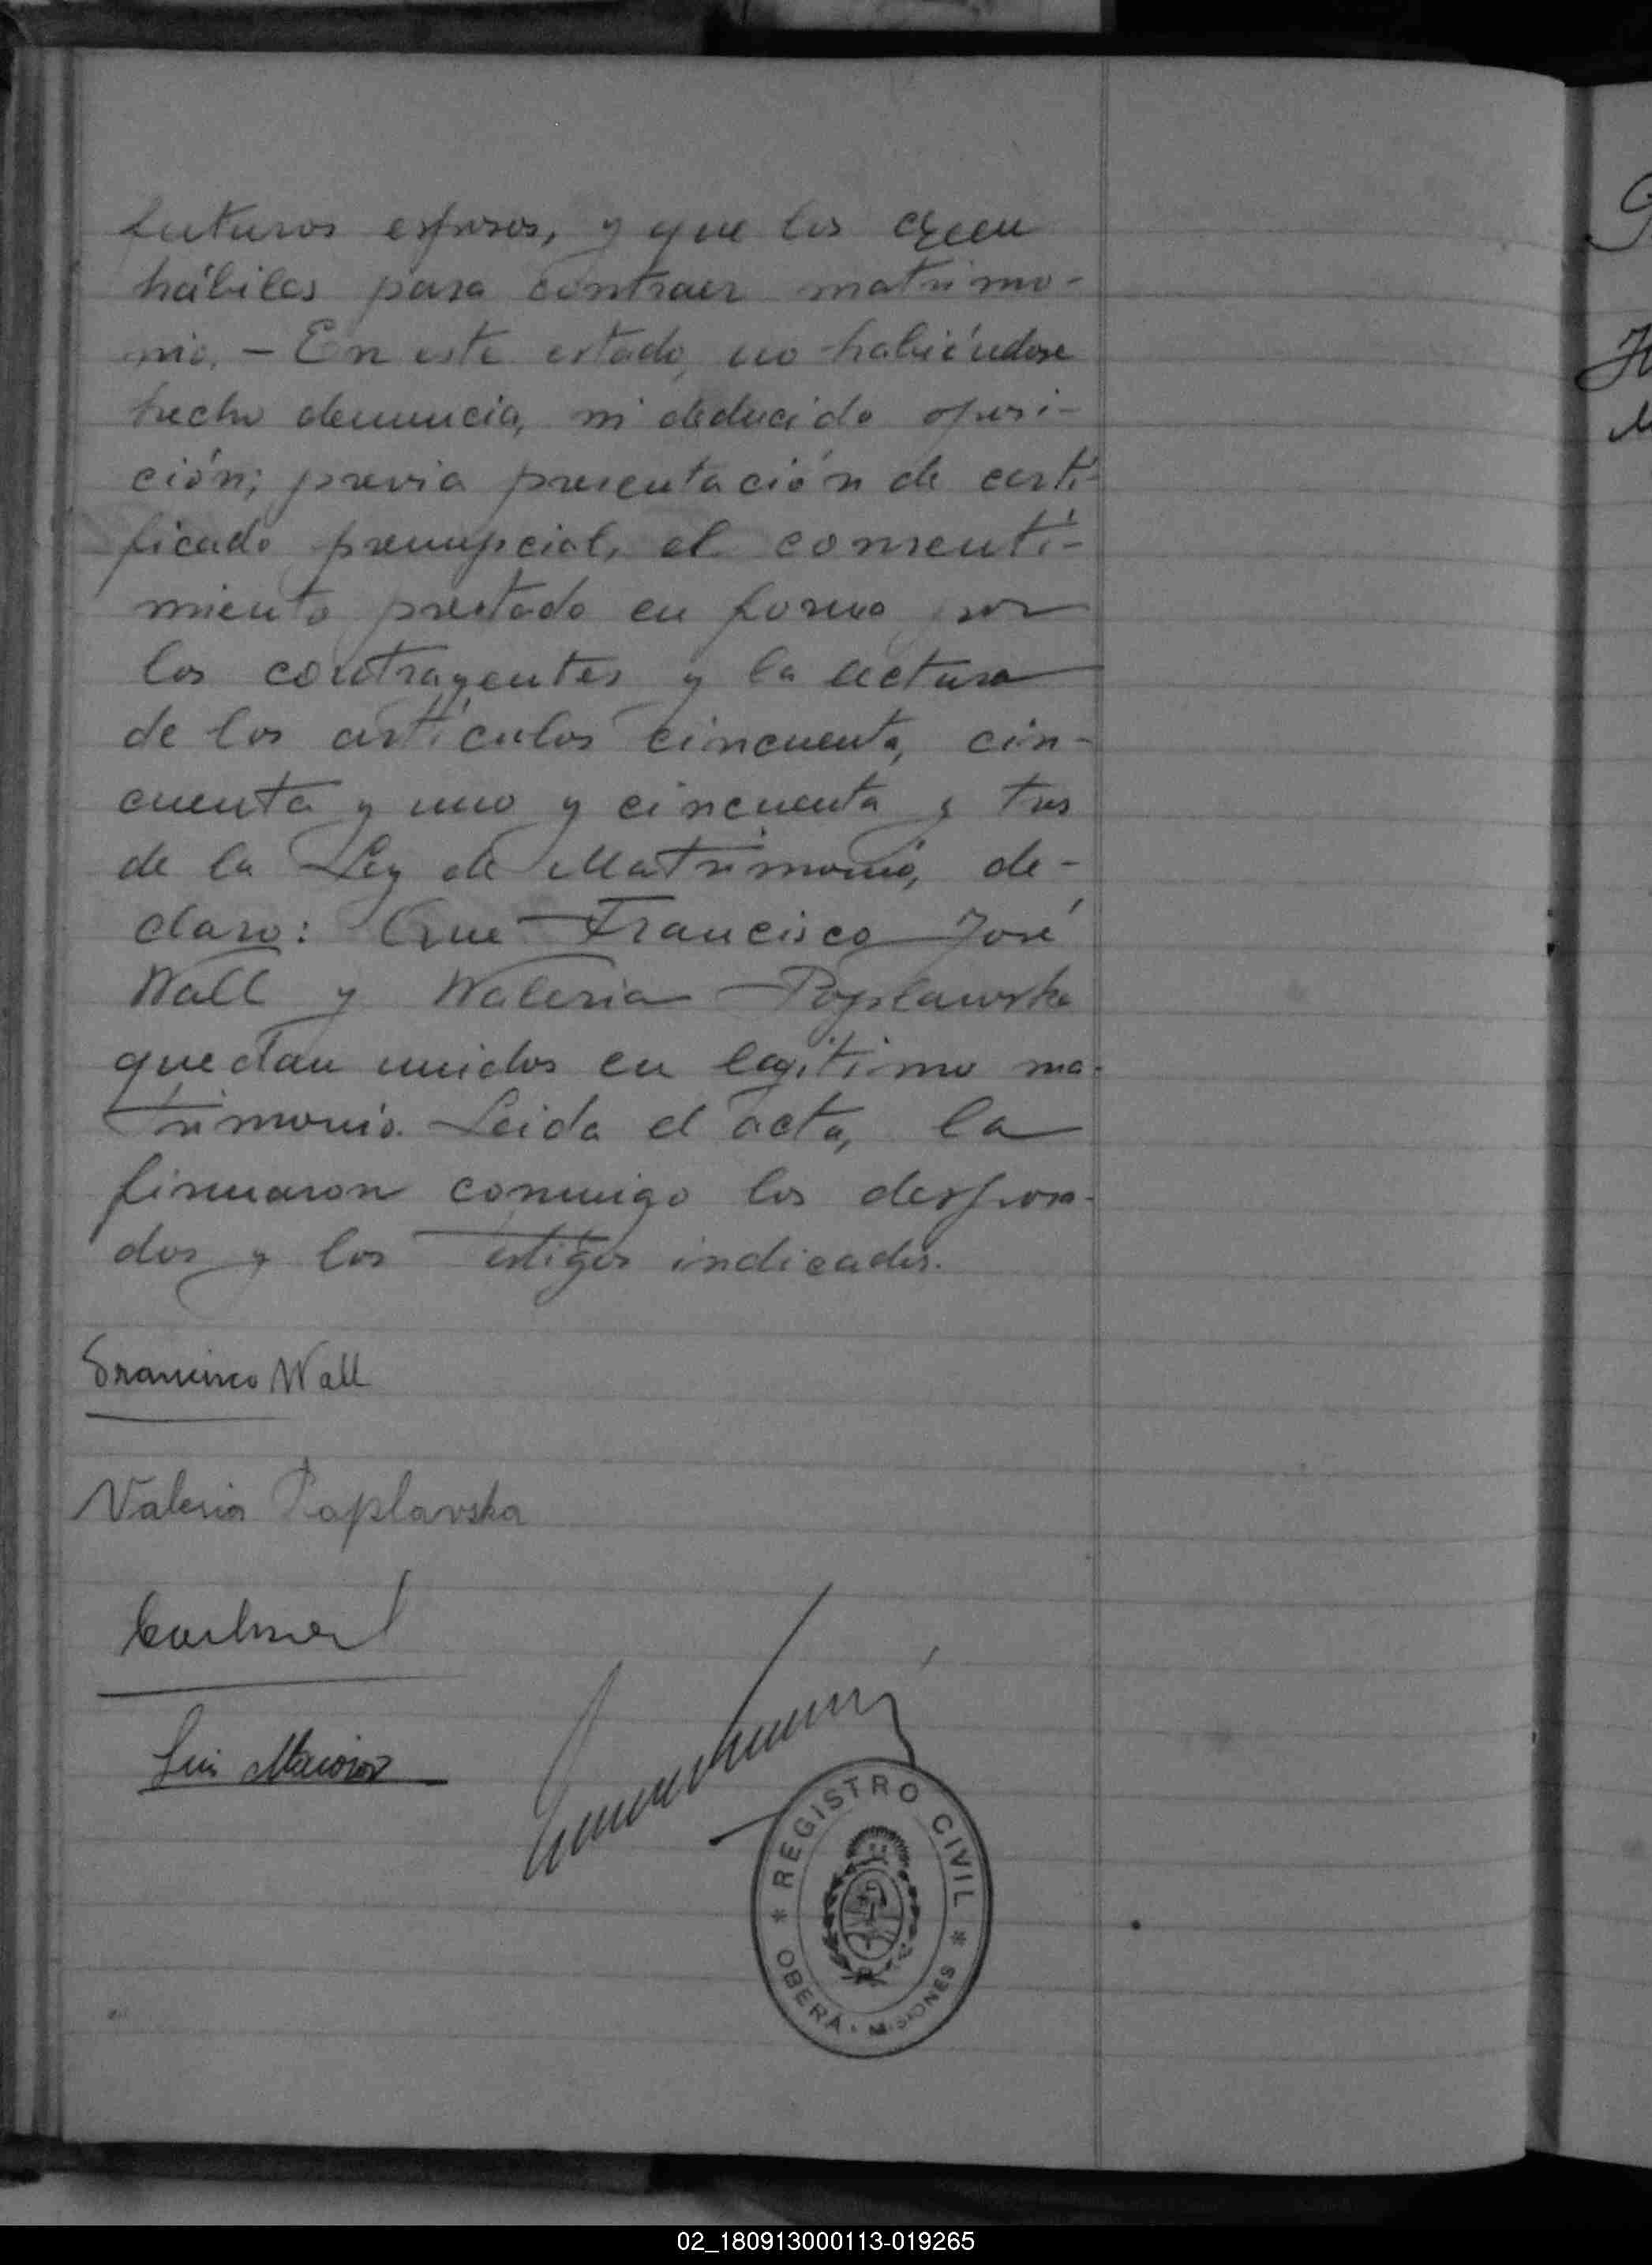 futuros esposos, y que los creen
hábiles para contraer matrimo-
nio. - En este estado, no habiéndose
hecho denuncia, ni deducido oposi-
ción; previa presentación de certi-
ficado prenupcial, el consenti-
miento prestado en forma por
los contrayentes y la lectura
de los artículos cincuenta, cin-
cuenta y uno y cincuenta y tres
de la Ley de Matrimonio, de-
claro: Que Francisco José
Wall y Waleria Poplawska
quedan unidos en legítimo ma-
trimonio. Leida el acta, la
firmaron conmigo los desposa-
dos y los testigos indicados.
Francisco Wall
Valeria Poplavska
Luis
REGISTRO CIVIL
OBERÁ · MISIONES
02_180913000113-019265